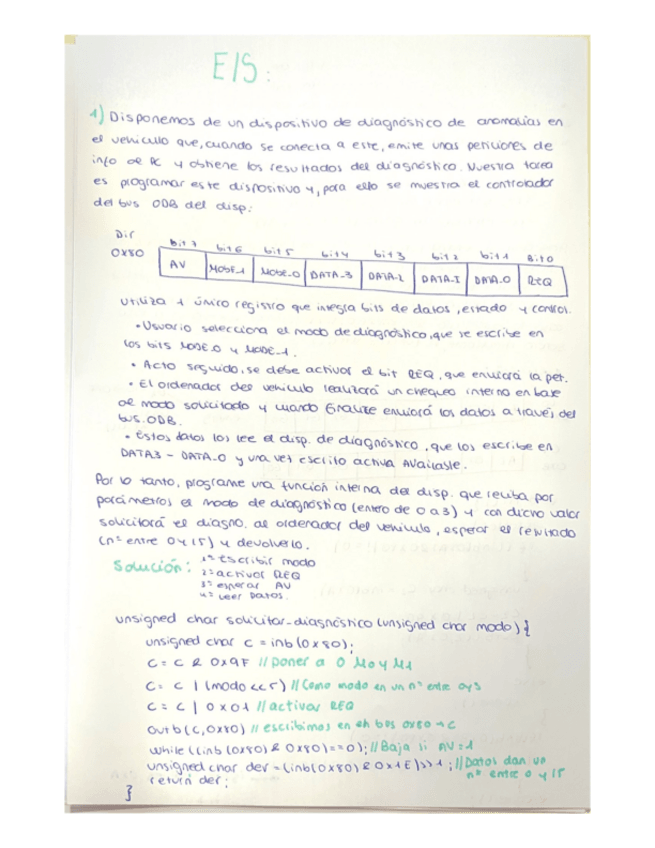 E/S:
1) Disponemos de un dispositivo de diagnóstico de anomalías en
el vehículo que, cuando se conecta a este, emite unas peticiones de
info al PC y obtiene los resultados del diagnóstico. Nuestra tarea
es programar este dispositivo y, para ello se muestra el controlador
del bus ODB del disp:
Dir
bit 7 bit 6 bit 5 bit 4 bit 3 bit 2 bit 1 Bit 0
0x80 AV MODE_1 MODE_0 DATA_3 DATA_2 DATA_1 DATA_0 REQ
utiliza 1 único registro que integra bits de datos, estado y control.
• Usuario selecciona el modo de diagnóstico, que se escribe en
los bits MODE_0 y MODE_1.
• Acto seguido, se debe activar el bit REQ, que enviará la pet.
• El ordenador del vehículo realizará un chequeo interno en base
al modo solicitado y cuando finalize enviará los datos a través del
bus ODB.
• Estos datos los lee el disp. de diagnóstico, que los escribe en
DATA3 - DATA_0 y una vez escrito activa AVailable.
Por lo tanto, programe una función interna del disp. que reciba por
parámetros el modo de diagnóstico (entero de 0 a 3) y con dicho valor
solicitará el diagno. al ordenador del vehículo, esperar el resultado
(nº entre 0 y 15) y devolverlo.
Solución: 1º escribir modo
2º activar REQ
3º esperar AV
4º leer Datos.
unsigned char solicitar_diagnóstico (unsigned char modo) {
unsigned char c = inb(0x80);
c = c & 0x9F // poner a 0 M0 y M1
c = c | (modo << 5) // Como modo en un nº entre 0 y 3
c = c | 0x01 // activar REQ
outb (c, 0x80) // escribimos en eh bos 0x80 → c
while ((inb (0x80) & 0x80) == 0); // Baja si AV = 1
unsigned char der = (inb(0x80) & 0x1E) >> 1; // Datos dan un
nº entre 0 y 15
return der;
}